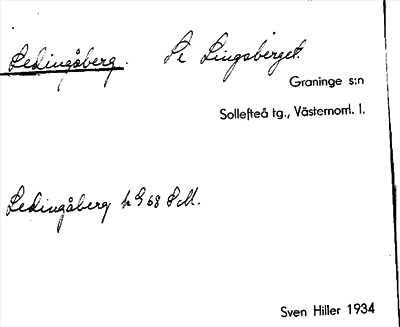 Ledingåberg. Se Lingsberget.
Graninge s:n
Sollefteå tg., Västernorrl. l.
Ledingåberg h 968 SM.
Sven Hiller 1934